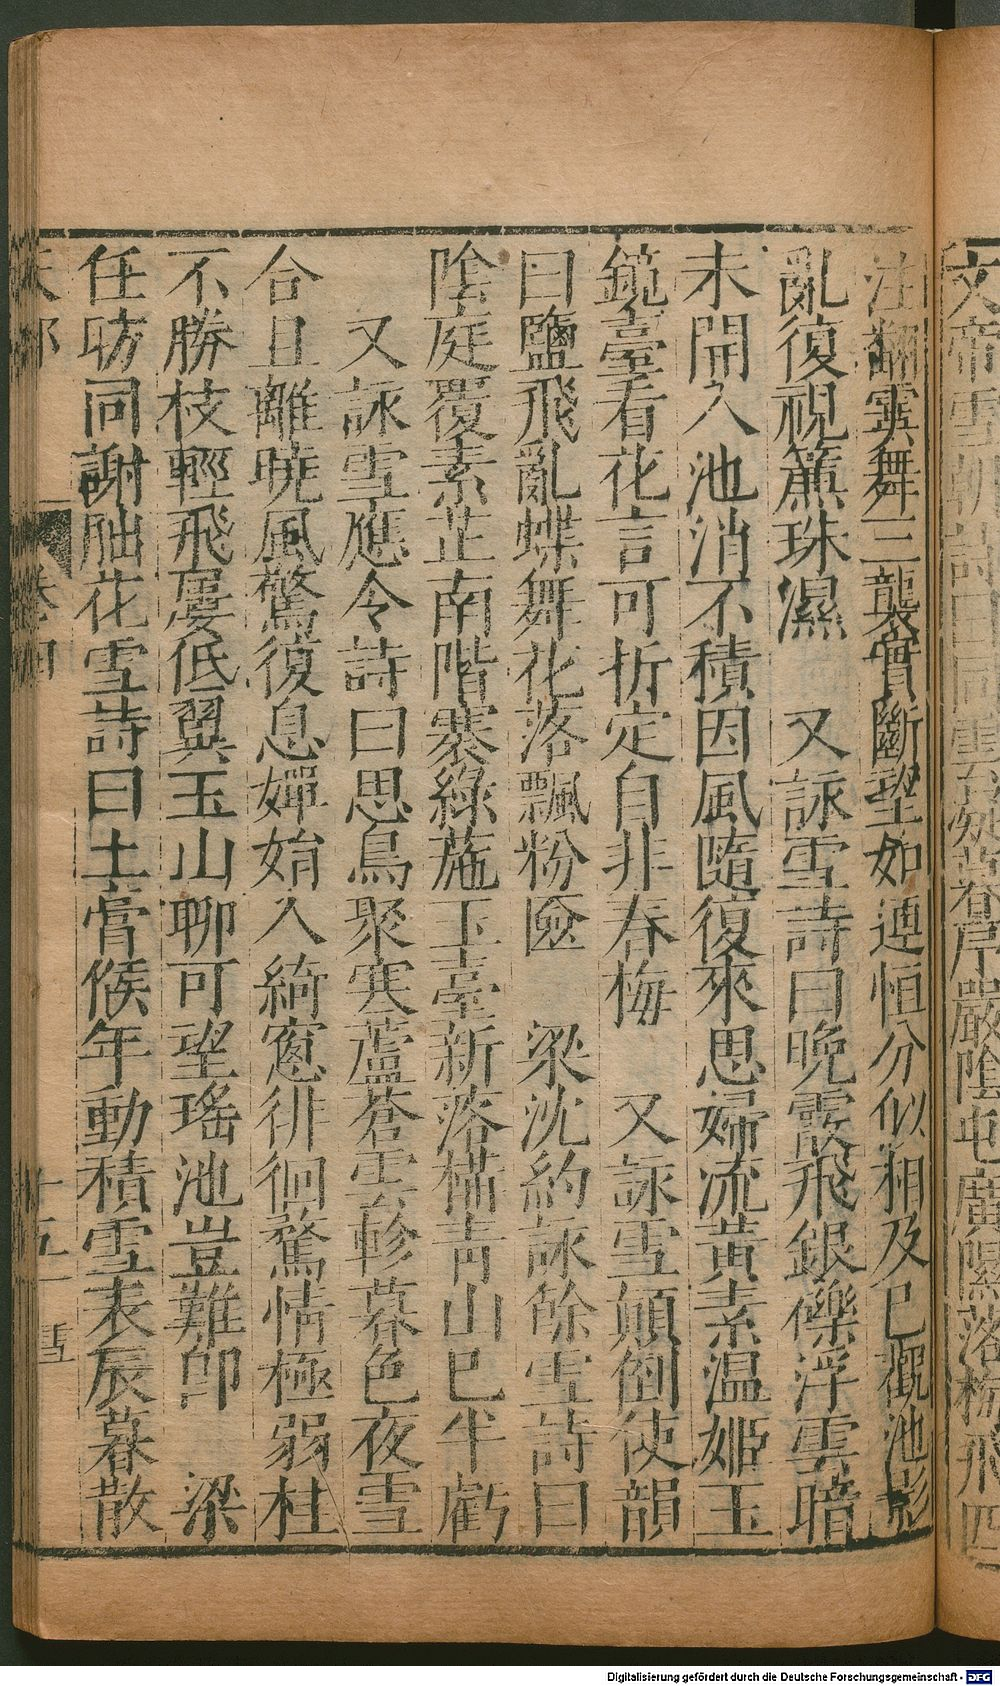 文帝雪朝詩曰同雲暮序嚴陰屯廣隰落梅飛四
注翻霙舞三襲實斷望如連恒分似相及已觀池影
亂復視簾珠濕　又詠雪詩曰晚霰飛銀礫浮雲暗
未開入池消不積因風隨復來思婦流黃素温姬玉
鏡臺看花言可折定自非春梅　又詠雪顛倒使韻
曰鹽飛亂蝶舞花落飄粉匳　梁沈約詠餘雪詩曰
陰庭覆素芷南階褰綠葹玉臺新落構青山已半虧
又詠雪應令詩曰思鳥聚寒蘆蒼雲軫暮色夜雪
合且離曉風驚復息嬋娟入綺窻徘徊驚情極弱桂
不勝枝輕飛屢低翼玉山聊可望瑤池豈難卽　梁
任昉同謝朏花雪詩曰土膏候年動積雪表辰暮散
天部　卷四　十五
Digitalisierung gefördert durch die Deutsche Forschungsgemeinschaft - DFG